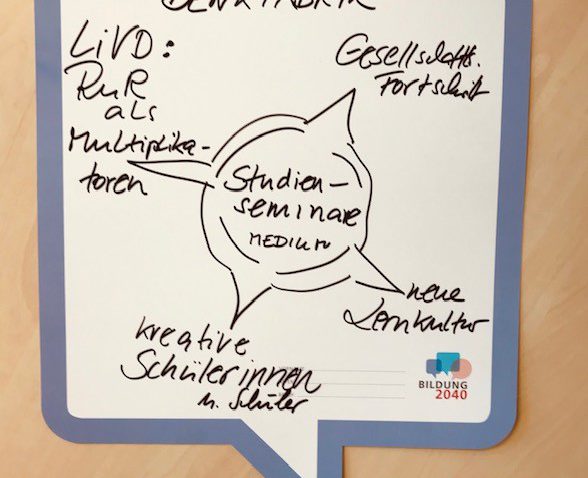 DENKFABRIK
LiVD:
RuR
als
Multiplika-
toren
Gesellschafts.
Fortschritt
Studien-
seminare
MEDIUM
neue
Lernkultur
kreative
Schülerinnen
u. Schüler
BILDUNG
2040